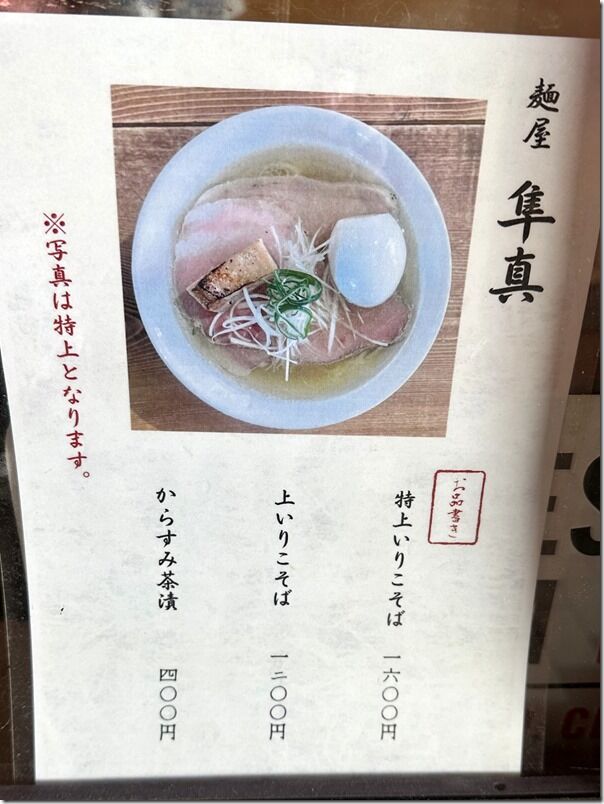 麺屋 隼真
お品書き
特上いりこそば 一六〇〇円
上いりこそば 一二〇〇円
からすみ茶漬 四〇〇円
※写真は特上となります。
ES